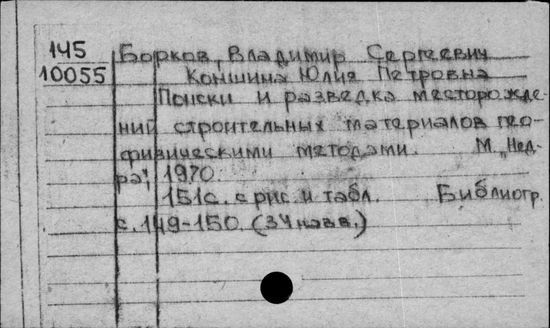 145
10055
Борков, Владимир Сергеевич
Коншина Юлия Петровна
Поиски и разведка месторожде-
ний строительных материалов гео-
физическими методами. М. „Нед-
ра", 1970.
151с. с рис. и табл. Библиогр.
с. 149-150. (34 назв.)